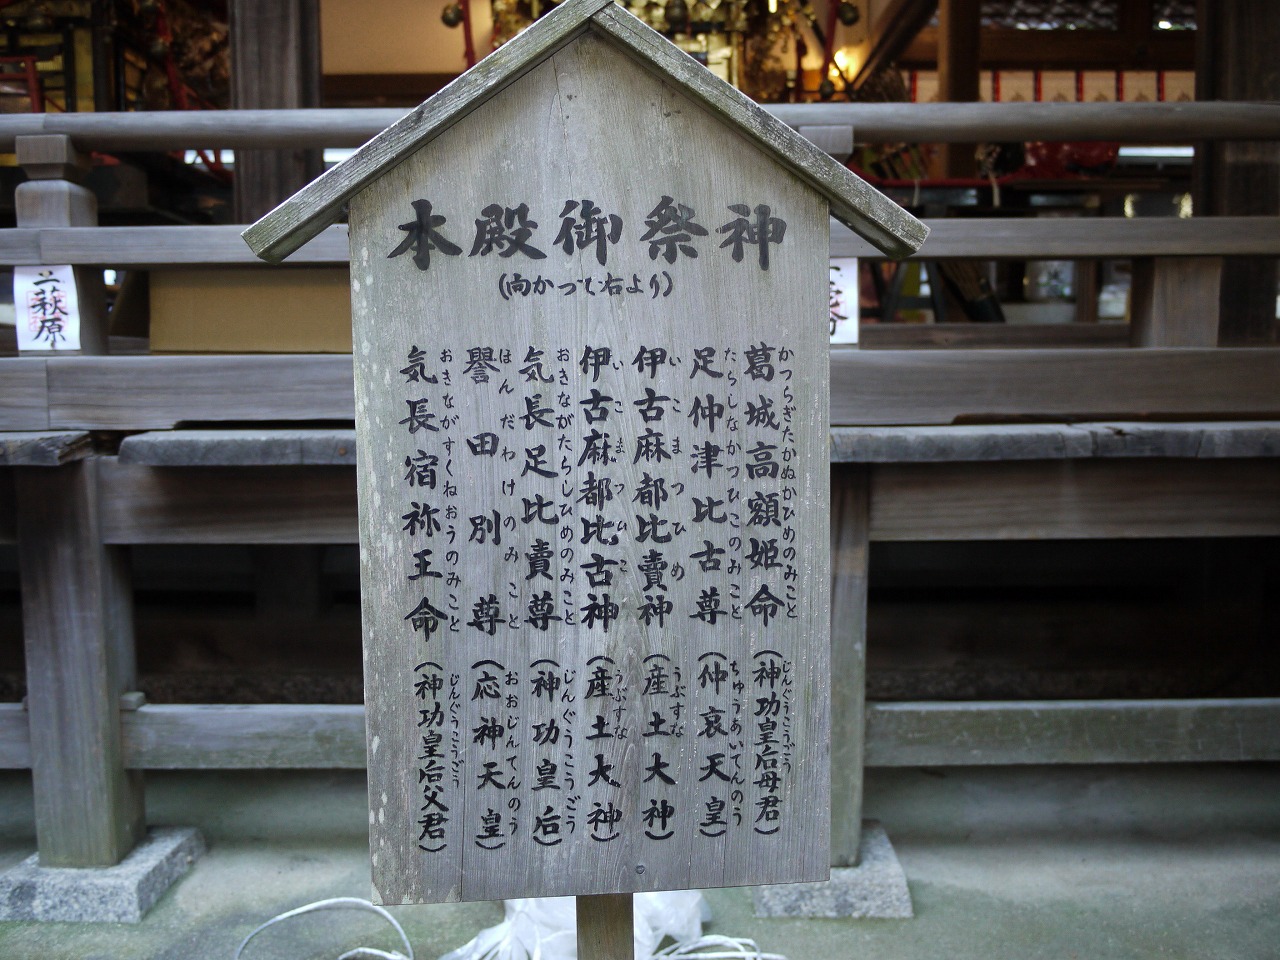 本殿御祭神
(向かって右より)
葛城高額姫命(神功皇后母君)
かつらぎたかぬかひめのみこと じんぐうこうごう
足仲津比古尊(仲哀天皇)
たらしなかつひこのみこと ちゅうあいてんのう
伊古麻都比賣神(産土大神)
いこまつひめ うぶすな
伊古麻都比古神(産土大神)
いこまつひこ うぶすな
気長足比賣尊(神功皇后)
おきながたらしひめのみこと じんぐうこうごう
譽田別尊(応神天皇)
ほんだわけのみこと おおじんてんのう
気長宿祢王命(神功皇后父君)
おきながすくねおうのみこと じんぐうこうごう
萩原